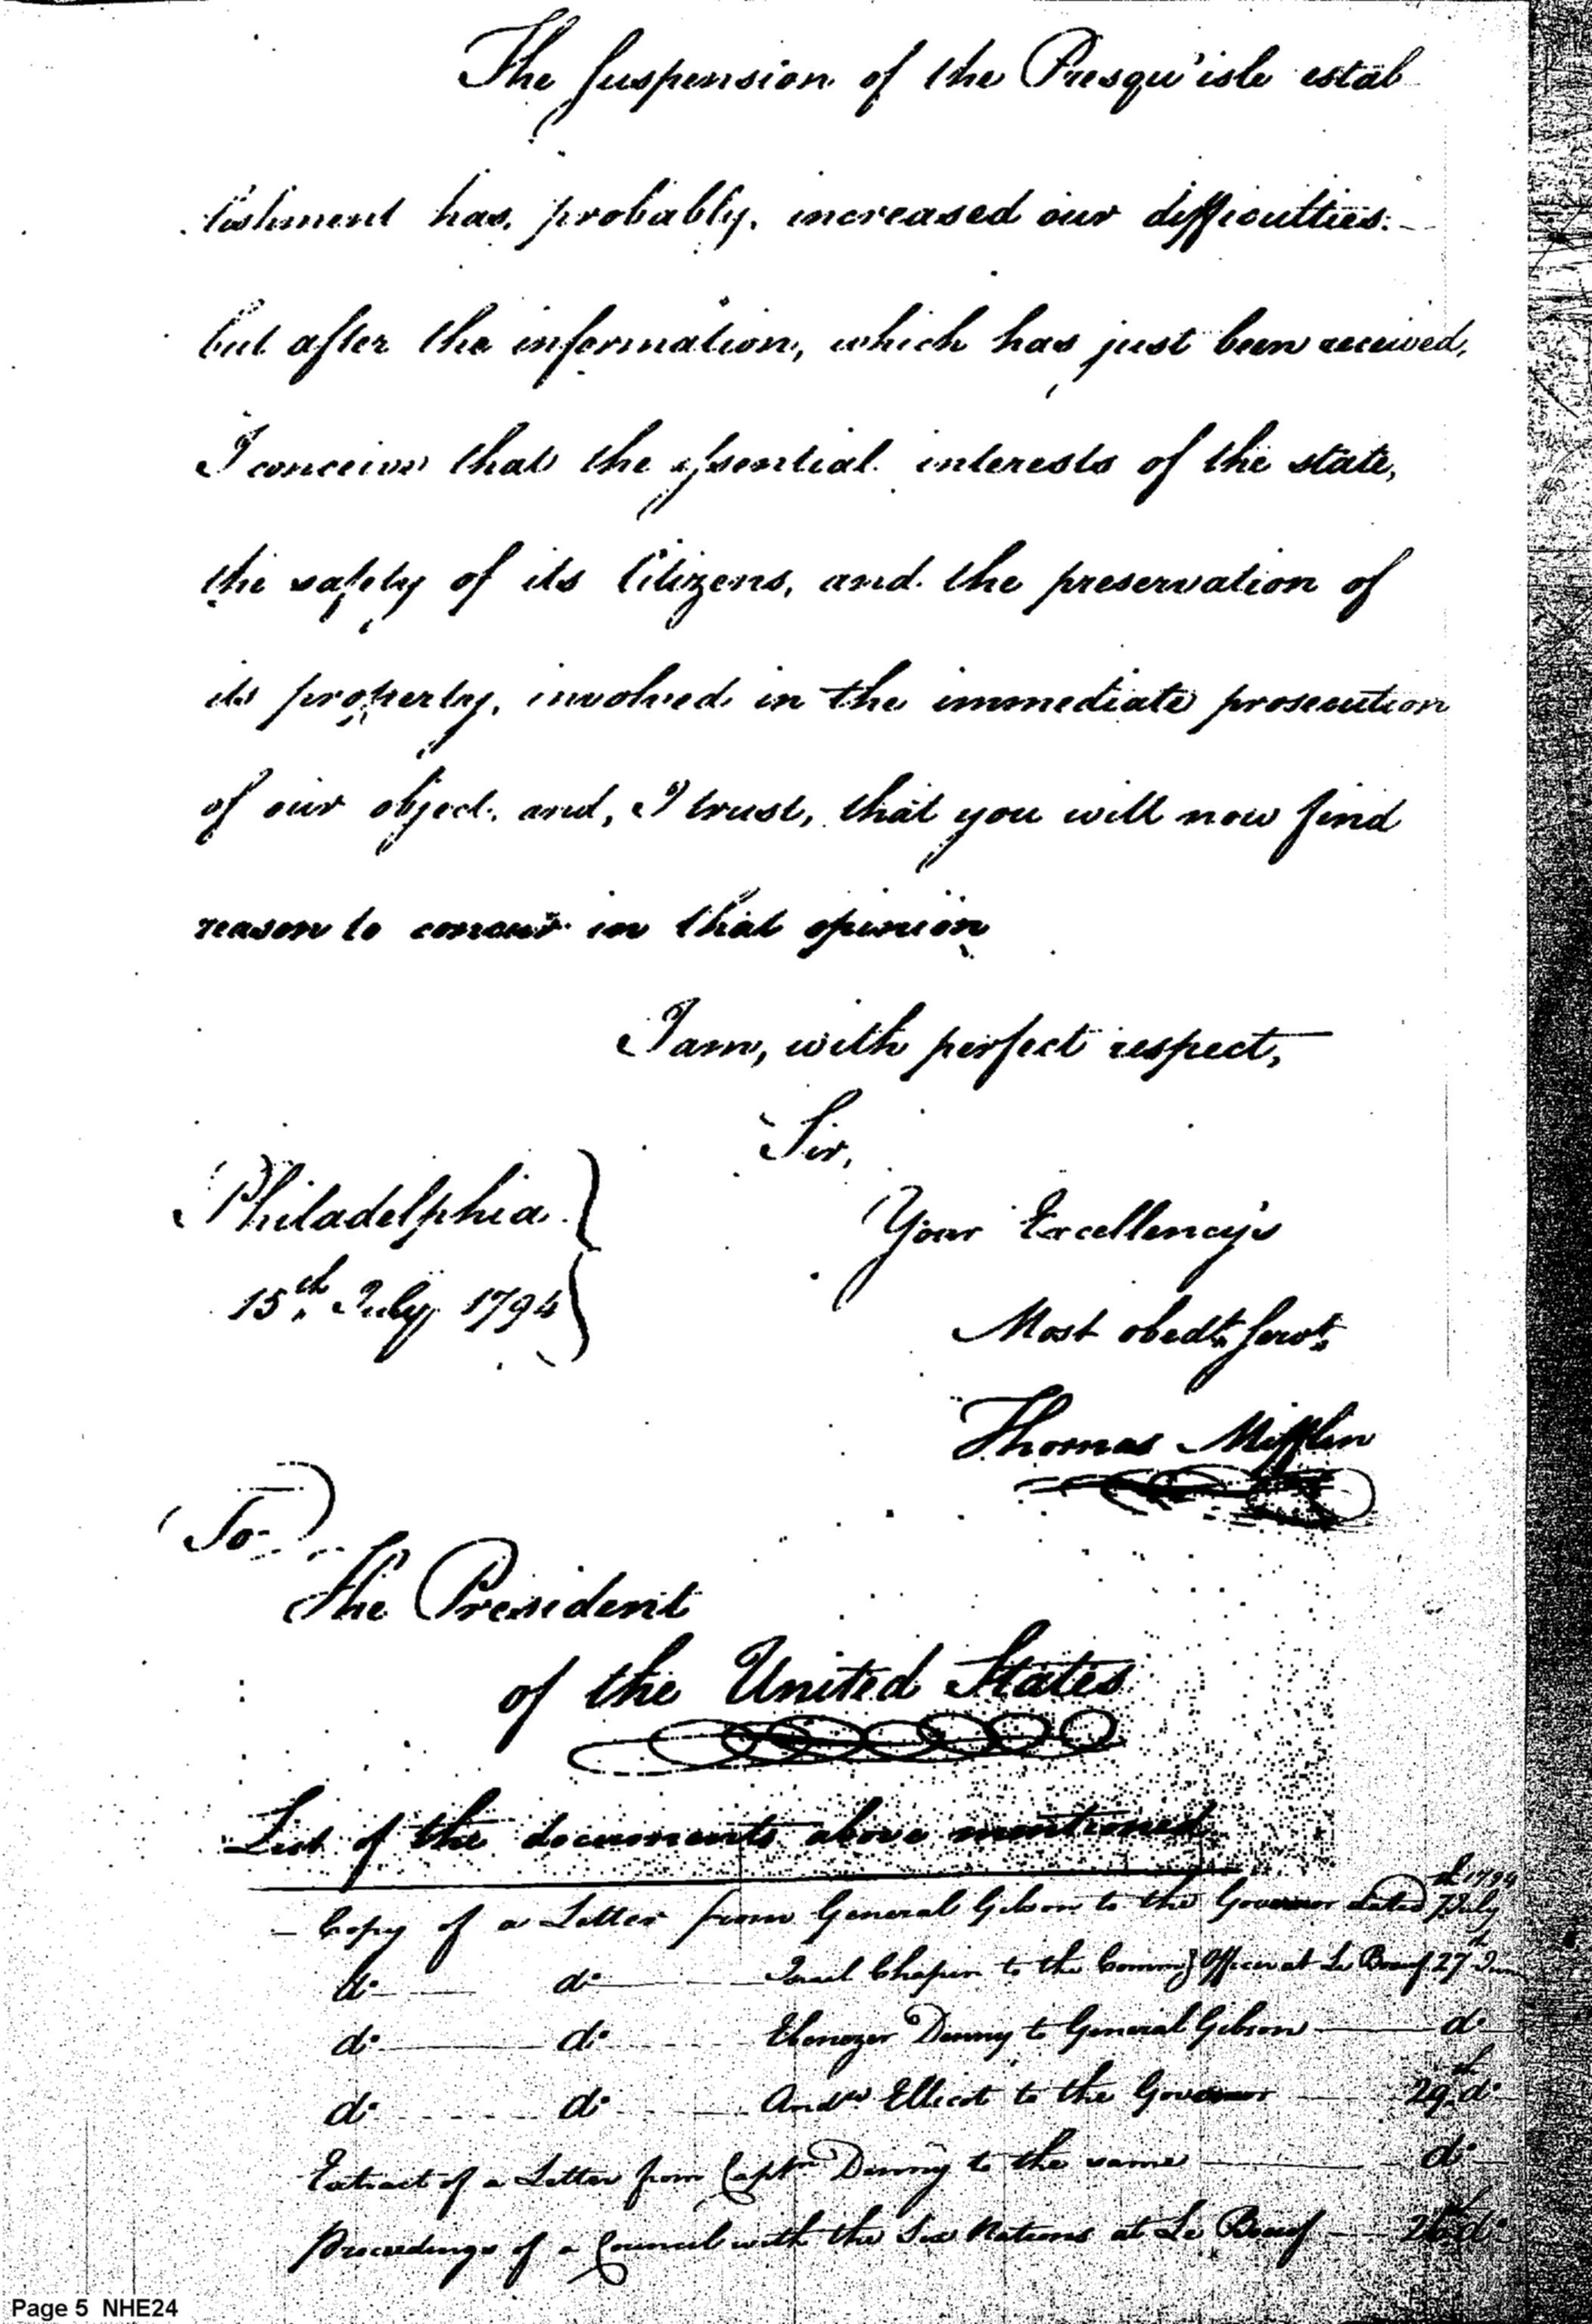 The Suspension of the Presqu'isle estab
lishment has, probably, increased our difficulties:
but after the information, which has just been received,
I conceive that the essential interests of the state,
the safety of its Citizens, and the preservation of
its property, involved in the immediate prosecution
of our object, and, I trust, that you will now find
reason to concur in that opinion
I am, with perfect respect,
Sir,
Philadelphia
15th July 1794
Your Excellency's
Most obedt. Servt.
Thomas Mifflin
To
The President
of the United States
List of the documents above mentioned
Copy of a Letter from General Gibson to the Governor dated 7th July 1794
do do Israel Chapin to the Commg Officer at Le Boeuf 27th June
do do Ebenezer Denny to General Gibson do
do do Andw Ellicot to the Governor 29th do
Extract of a Letter from Captn Denny to the same do
Proceedings of a Council with the Six Nations at Le Boeuf 26th do
Page 5 NHE24